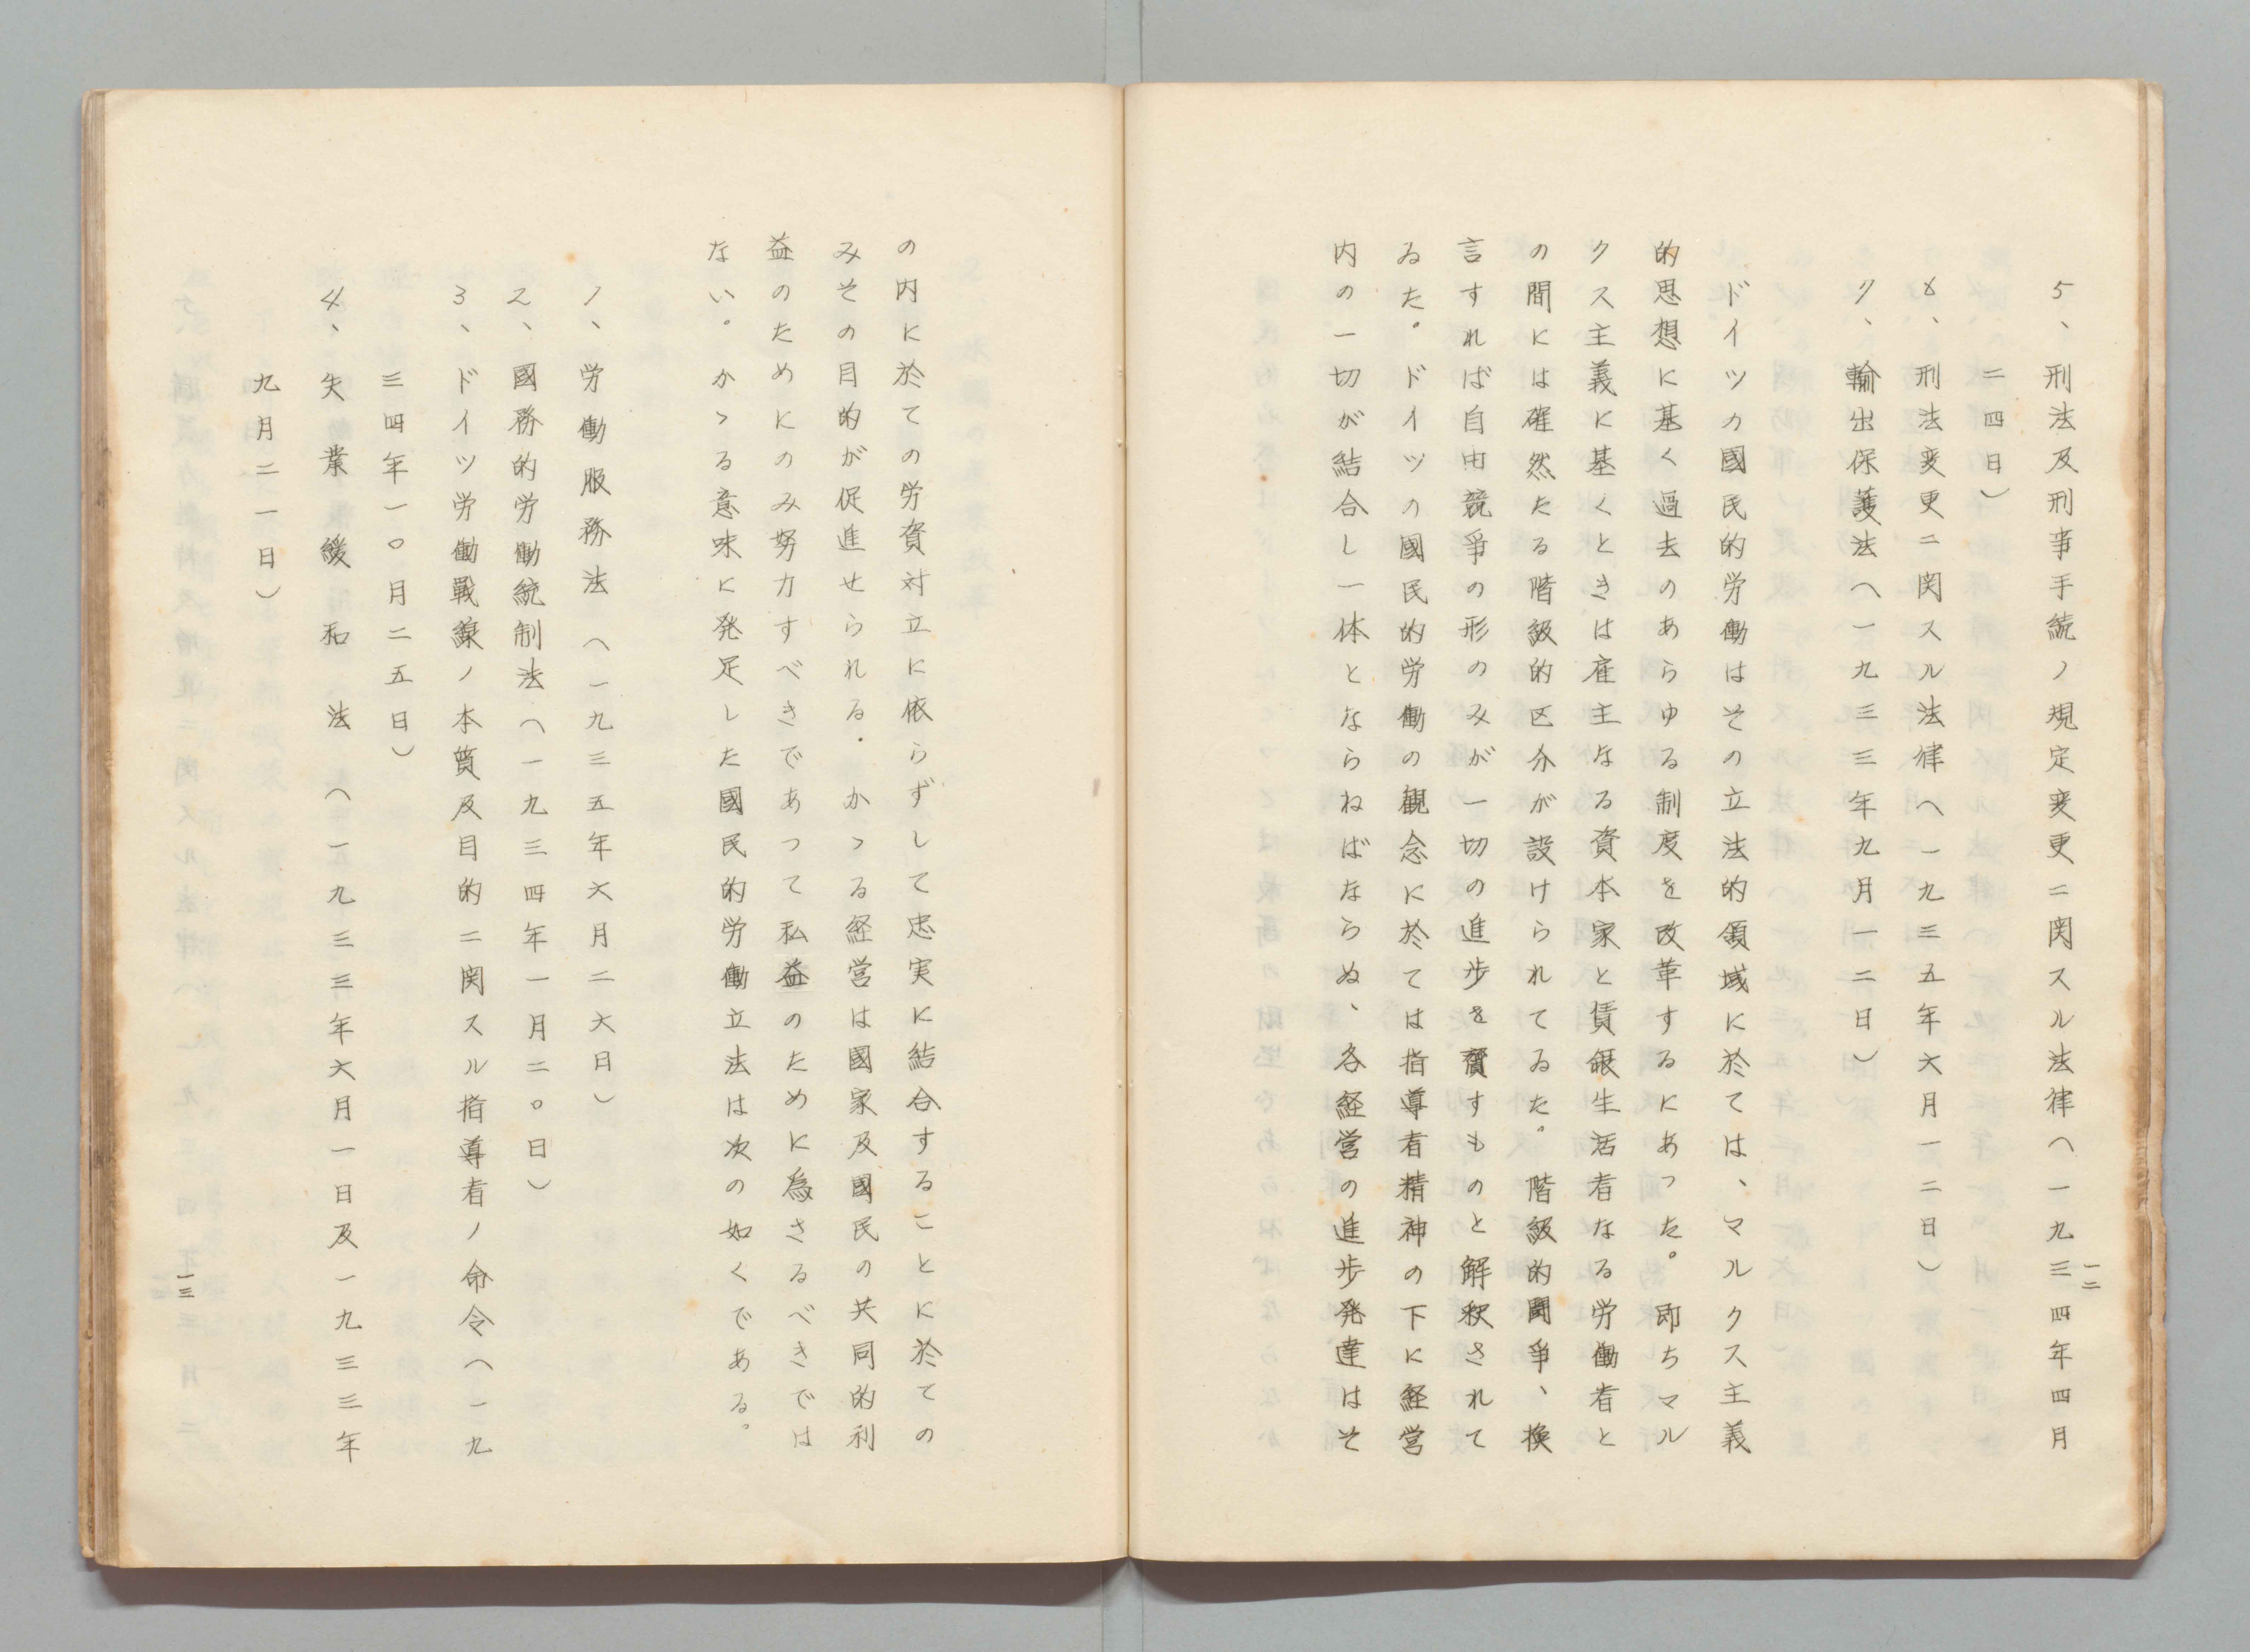 5、刑法及刑事手続ノ規定変更ニ関スル法律(一九三四年四月
二四日)
6、刑法変更ニ関スル法律(一九三五年六月二二日)
7、輸出保護法(一九三三年九月一二日)
ドイツの國民的労働はその立法的領域に於ては、マルクス主義
的思想に基く過去のあらゆる制度を改革するにあった。即ちマル
クス主義に基くときは雇主なる資本家と賃銀生活者なる労働者と
の間には確然たる階級的区分が設けられてゐた。階級的闘争、換
言すれば自由競争の形のみが一切の進歩を齎すものと解釈されて
ゐた。ドイツの國民的労働の観念に於ては指導者精神の下に経営
内の一切が結合し一体とならねばならぬ、各経営の進歩発達はそ
一二
の内に於ての労資対立に依らずして忠実に結合することに於ての
みその目的が促進せられる。かゝる経営は國家及國民の共同的利
益のためにのみ努力すべきであつて私益のために為さるべきでは
ない。かゝる意味に発足した國民的労働立法は次の如くである。
1、労働服務法(一九三五年六月二六日)
2、國務的労働統制法(一九三四年一月二〇日)
3、ドイツ労働戦線ノ本質及目的ニ関スル指導者ノ命令(一九
三四年一〇月二五日)
4、失業緩和法(一九三三年六月一日及一九三三年
九月二一日)
一三